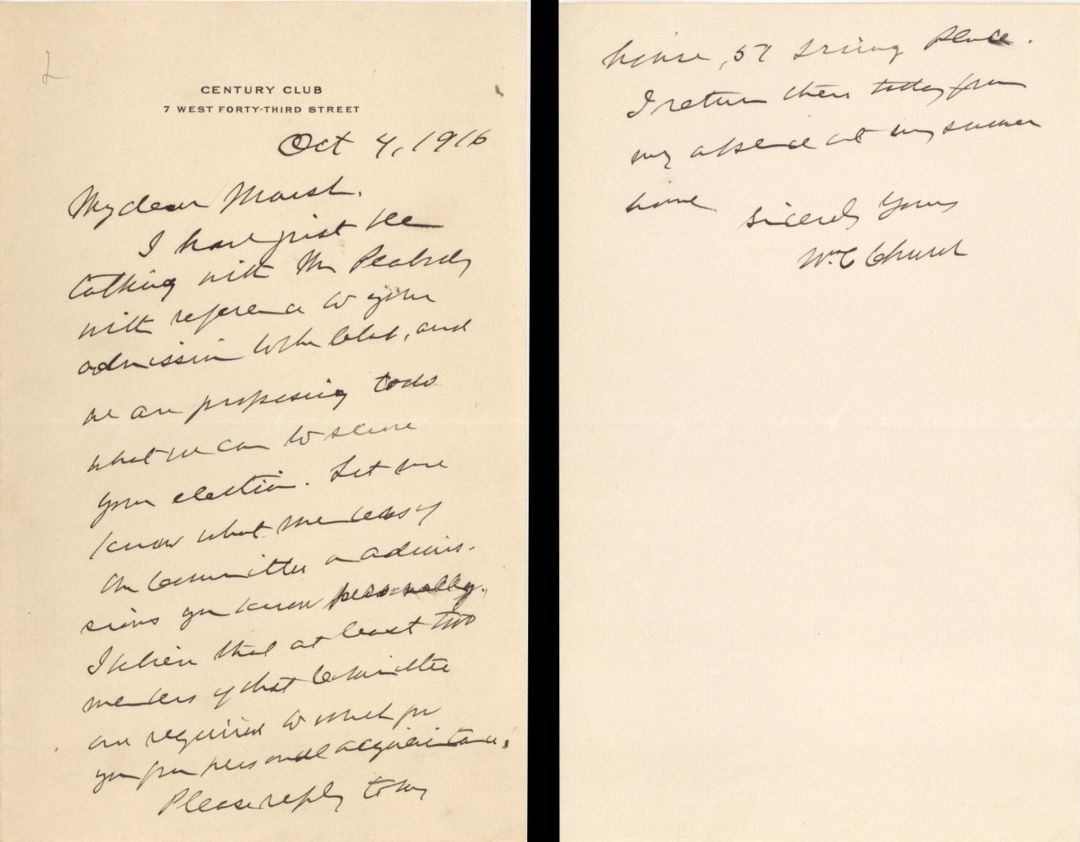 CENTURY CLUB
7 WEST FORTY-THIRD STREET
Oct 4, 1916
My dear Marsh.
I have just be
talking with Mr Peabody
with reference to your
admission to the Club, and
we are proposing to do
what we can to secure
your election. Let me
know what members of
the Committee on admis-
sions you know personally.
I believe that at least two
members of that Committee
are required to vouch for
you from personal acquaintance.
Please reply to my
house, 51 Irving Place.
I return there today from
my absence at my summer
home
Sincerely Yours
Wm C Church